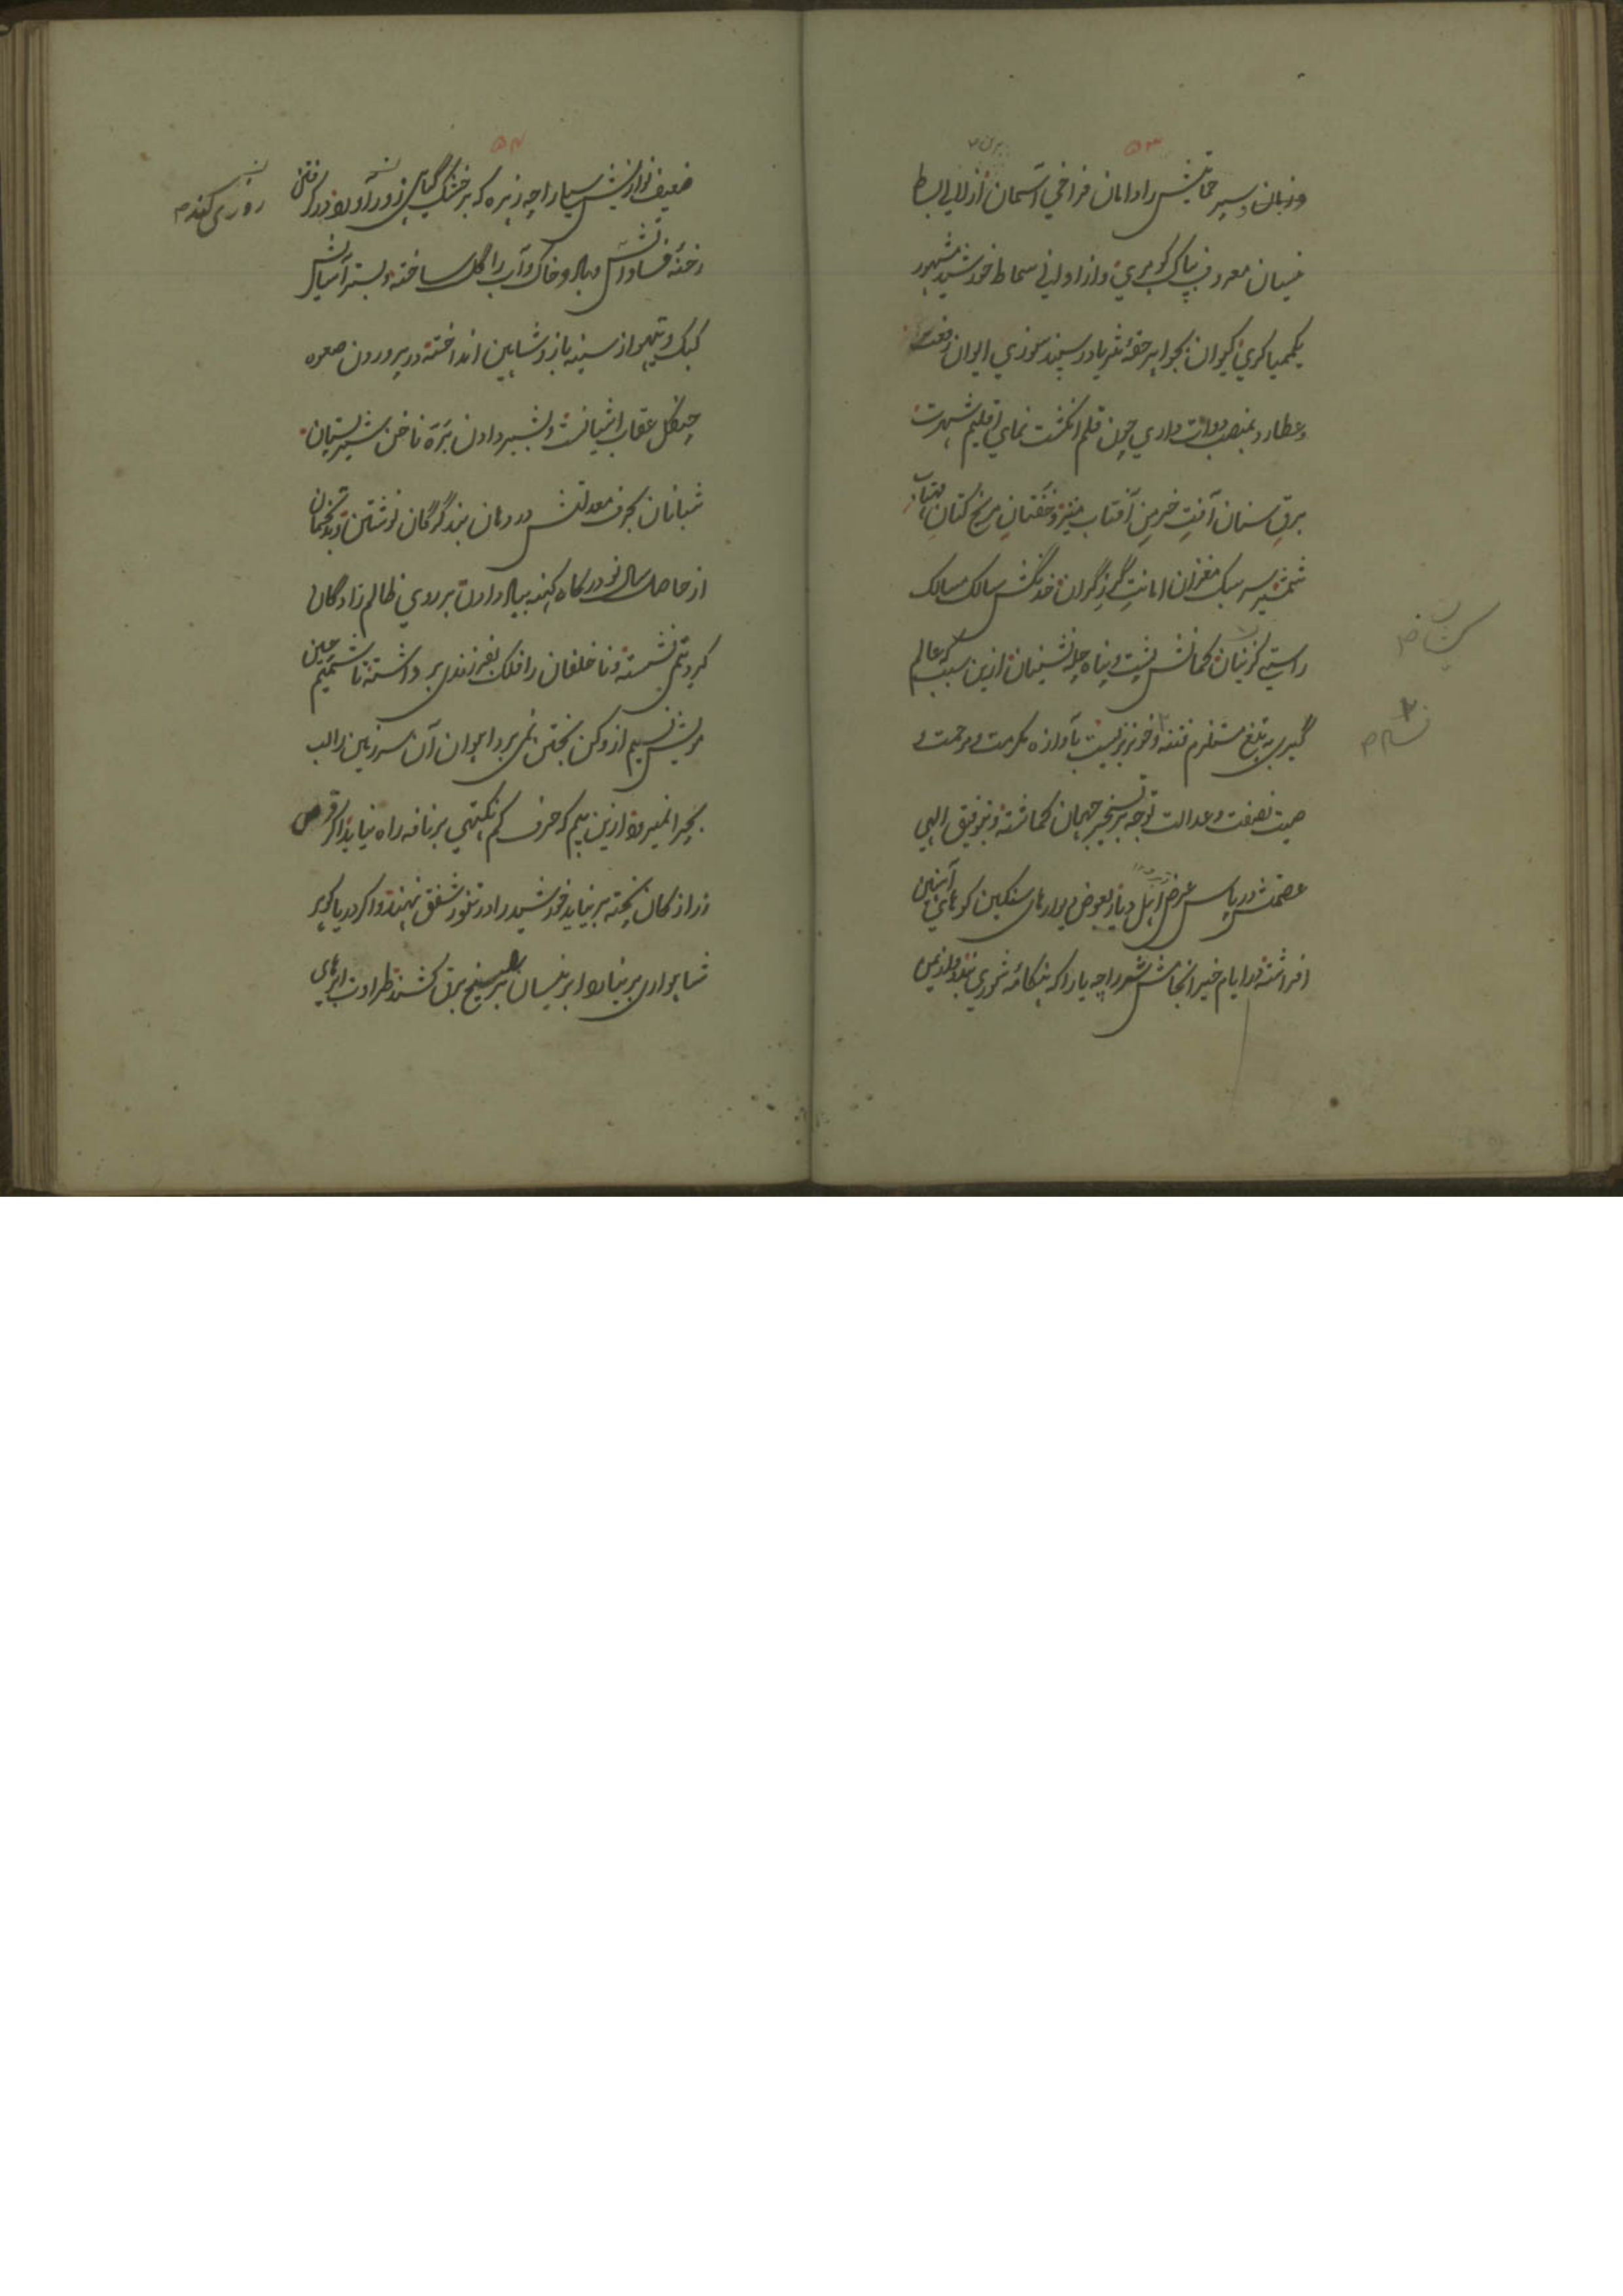 ۵۳
و زبان و سپر حمایتش را دامان فراخی آسمان از لالی بسط
نیسان معروف بپاک گوهری و از اولنی سماط خورشید مشهور
بکیمیاگری کیوان بجواهر حقهٔ ثریا در سپند سوزی ایوان رفعت
و عطارد بمنصب دوات داری چون قلم انگشت نمای اقلیم شهرت
برق سنان آفت خرمن آفتاب مغفر و خفتان مریخ کتان مهتاب
شمشیر سر سبک مغزان امانت گرز گران خدنگش سالک مسالک
راستی گزینان کمانش پشت و پناه چله نشینان ازین سبب که عالم
گیری به تیغ مستلزم فتنه و خونریزیست بآوازه مکرمت و مرحمت و
صیت نصفت و عدالت توجه بر تسخیر جهان گماشته و بتوفیق الهی
عصمتش در پاس عرض اهل دیار بعوض دیوارهای سنگین کوههای آهنین
افراشته در ایام خیر انجامش شور را چه یارا که هنگامه شوری بندد و از یمن
۵۴
ضعیف نوازیش سیل را چه زهره که بر خشک گیاهی زور آورد در گرفتن
رخنه فساد آتش و باد و خاک و آب را گل ساخته و بستر آسایش
کبک و تیهو از سینه باز و شاهین انداخته در پرورون صعوه
چنگل عقاب آشیانست و بشیر دادن بره ناخن شیر پستان
شبانان بحرف معدلتش در دهان بند گرگان نوشتن و بدتخمان
از حاصل سال نو در کاه کهنه بباد دادن بر روی ظالم زادگان
گرد یتم نشسته و ناخلفان را فلک بفرزندی بر داشته تا شمیم چین
مویش نسیم از دکن بختن نمی برد آهوان آن سرزمین را لب
بچرا نمیرود ازین بیم که حرف کم نکهتی بر نافه راه نیابد اگر قرص
زر از کان پخته بر نیاید خورشید را در تنور شفق نهند و اگر دریا گوهر
شاهواری بر نیارد ابر نیسان را بر سیخ برق کشند طراوت ابرهای
روزی کهندم